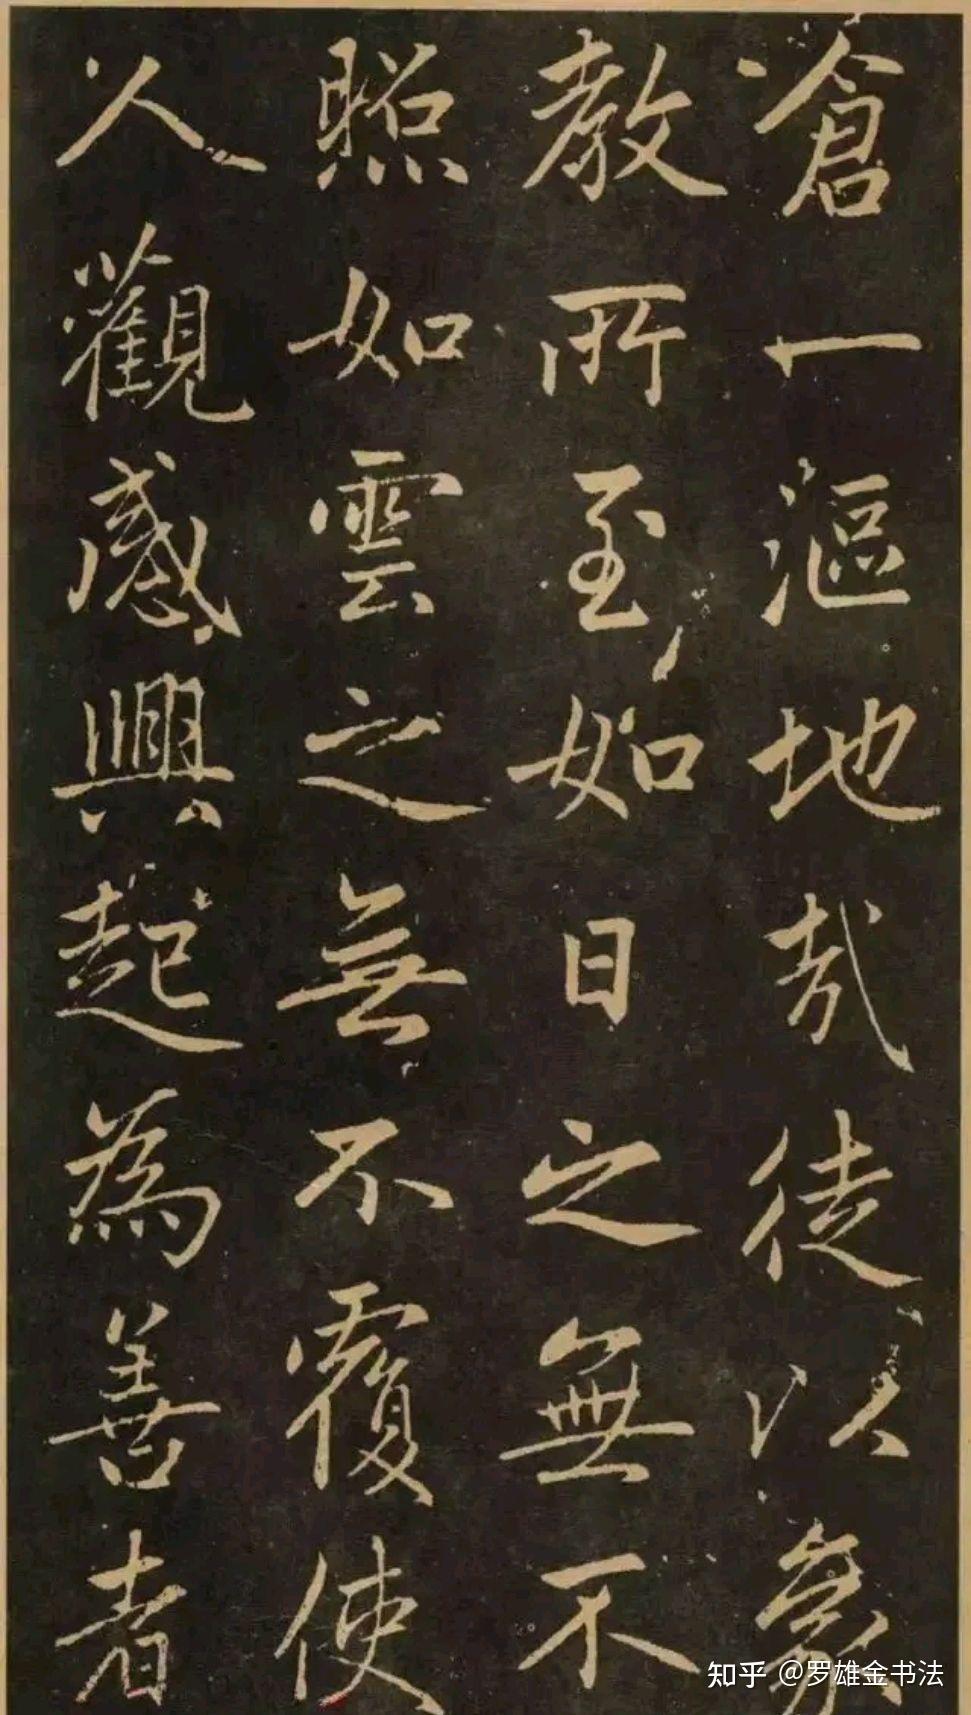 滄一漚地哉徒以象
教所至如日之無不
照如雲之無不覆使
人觀感興起為善者
知乎 @罗雄金书法